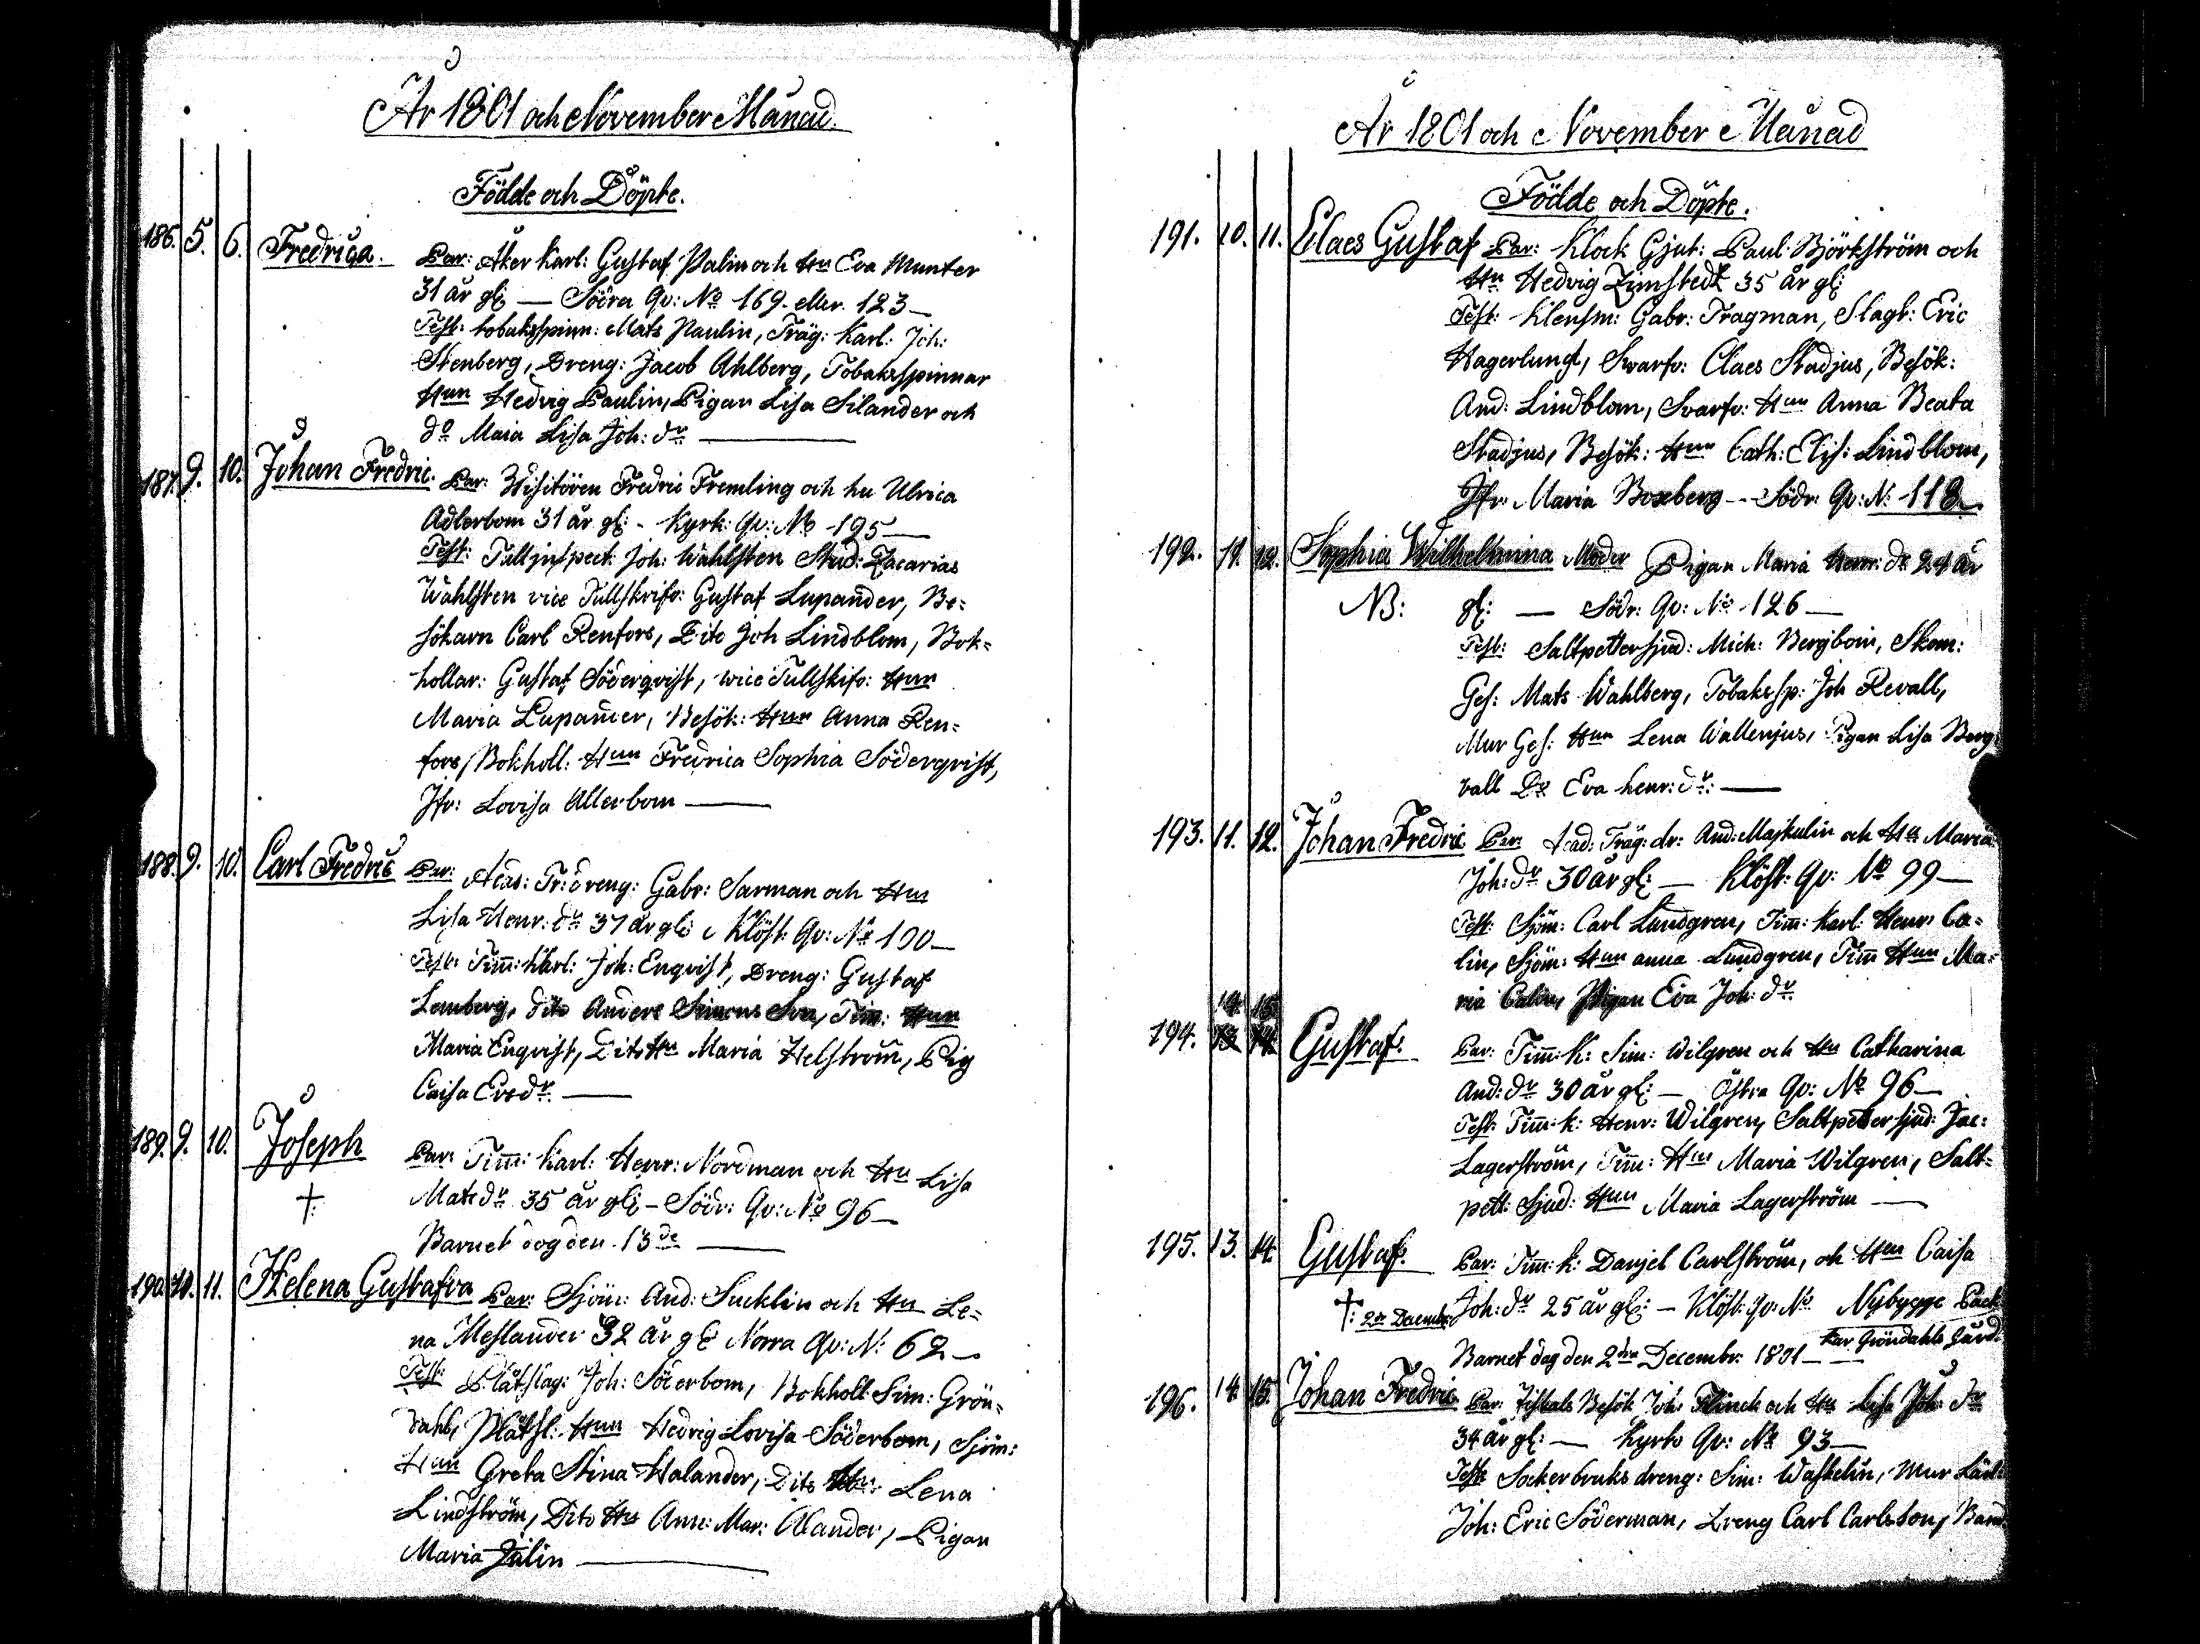 År 1801 och November Månad.
Födde och Döpte.
186. 5. 6. Fredrica. Par: Åker Karl: Gustaf Palin och Hu Eva Munter
31 år gl: — Södra Qv: No 169. eller. 123 —
Test: tobakspinn: Mats Paulin, Träg: Karl: Joh:
Stenberg, Dreng: Jacob Ahlberg, Tobaksspinnar
Hun Hedvig Paulin, Pigan Lisa Silander och
do Maia Lisa Joh: dr —
187. 9. 10. Johan Fredric. Par: Visitören Fredric Fremling och hu Ulrica
Adlerbom 31 år gl: - Kyrk: Qv: No 195 —
Test: Tullinspect: Joh: Wahlsten Stud: Zacarias
Wahlsten vice Tullskrifv: Gustaf Lupander, Be=
sökarn Carl Renfors, Dito Joh Lindblom, Bok=
hollar: Gustaf Söderqvist, vice Tullskifv: Hun
Maria Lupander, Besök: Hun Anna Ren=
fors, Bokholl: Hun Fredrica Sophia Söderqvist,
Jfr: Lovisa Allerbom —
188. 9. 10. Carl Fredric Par: Acas: Tr: dreng: Gabr: Sarman och Hun
Lisa Henr: dr 37 år gl: Klöst: Qv: No 100 —
Test: Tim: Karl: Joh: Enqvist, Dreng: Gustaf
Lemberg, dito Anders Simons Son, Tim: Hun
Maria Enqvist, Dito Hu Maria Helström, Pig
Caisa Ersdr —
189. 9. 10. Joseph Par: Tim: Karl: Henr: Nordman och Hu Lisa
†: Matsdr 35 år gl: - Södr: Qv: No 96 —
Barnet dog den 13de —
190. 10. 11. Helena Gustafva Par: Sjöm: And: Sucklin och Hu Le=
na Meslander 32 år gl: Norra Qv: N: 62 —
Test: Plåtslag: Joh: Söderbom, Bokholl Sim: Grön=
dahl, Plåtsl: Hun Hedvig Lovisa Söderbom, Sjöm:
Hun Greta Stina Halander, Dito Hu: Lena
Lindström, Dito Hu Ann: Mar: Alander, Pigan
Maria Julin —
År 1801 och November Månad
Födde och Döpte.
191. 10. 11. Claes Gustaf Par: Klock Gjut: Paul: Björkström och
Hu Hedvig Zimstedt 35 år gl:
Test: Klensm: Gabr: Tragman, Slagt: Eric
Hagerlund, Svarfv: Claes Stadjus, Besök:
And: Lindblom, Svarfv: Hun Anna Beata
Stadjus, Besök: Hun Cath: Elis: Lindblom,
Jfr: Maria Boxberg - - Södr: Qv: N: 118
192. 11. 12. Sophia Wilhelmina Moder Pigan Maria Henr: dr 24 år
NB: gl: — Södr: Qv: No 126 —
Test: Saltpettersjud: Mich: Bergboin, Skom:
Ges: Mats Wahlberg, Tobakssp: Joh Revall,
Mur Ges: Hun Lena Wallenjus, Pigan Lisa Berg
vall Do Eva henr: dr: —
193. 11. 12. Johan Fredric Par: Acad: Träg: dr: And: Majkulin och Hu Maria
Joh: dr 30 år gl: — Klöst: Qv: No 99 —
Test: Sjöm: Carl Lundgren, Tim: Karl: Henr: Ca=
lin, Sjöm: Hun anna Lundgren, Tim Hun Ma=
ria Calin, Pigan Eva Joh: dr
14. 15.
194. 13. 14. Gustaf. Par: Tim: K: Sim: Wilgren och Hu Catharina
And: dr 30 år gl: — Östra Qv: No 96 —
Test: Tim: k: Henr: Wilgren, Saltpettersjud: Jac:
Lagerström, Tim: Hun Maria Wilgren, Salt=
pett: Sjud: Hun Maria Lagerström —
195. 13. 14. Gustaf. Par: Tim: k: Danjel Carlström, ok Hun Caisa
†: 2dn Decembr Joh: dr 25 år gl: — Klöst: Qv: No Nybygge Back
kar Gröndahls Gård.
Barnet dog den 2dra Decembr: 1801 —
196. 14. 15. Johan Fredric Par: Fiskals Besök Joh: Flinck och Hu Lisa Joh: dr
34 år gl: — Kyrko Qv: No 93 —
Test: Sockerbruks dreng: Sim: Waskelin, Mur Lärl:
Joh: Eric Söderman, Dreng Carl Carlsson,